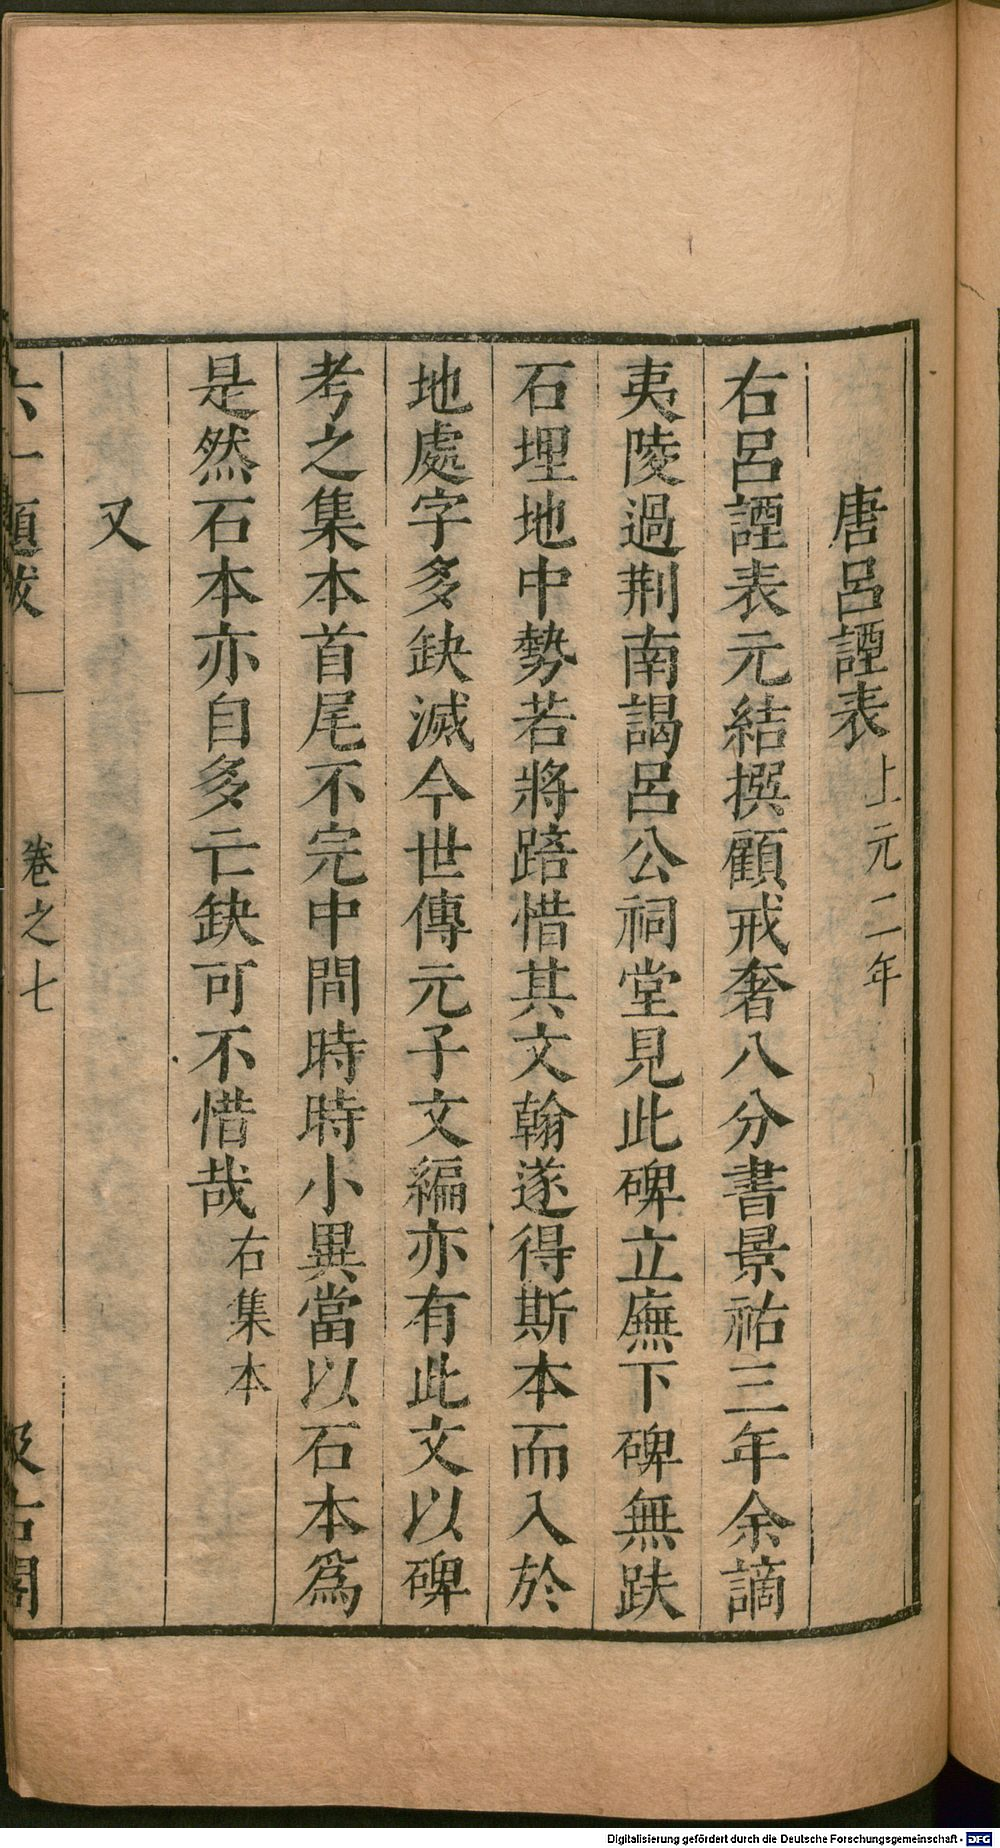 唐呂諲表上元二年
右呂諲表元結撰顧戒奢八分書景祐三年余謫
夷陵過荆南謁呂公祠堂見此碑立廡下碑無趺
石埋地中勢若將踣惜其文翰遂得斯本而入於
地處字多缺滅今世傳元子文編亦有此文以碑
考之集本首尾不完中間時時小異當以石本爲
是然石本亦自多亡缺可不惜哉右集本
又
六一題跋 卷之七 汲古閣
Digitalisierung gefördert durch die Deutsche Forschungsgemeinschaft - DFG